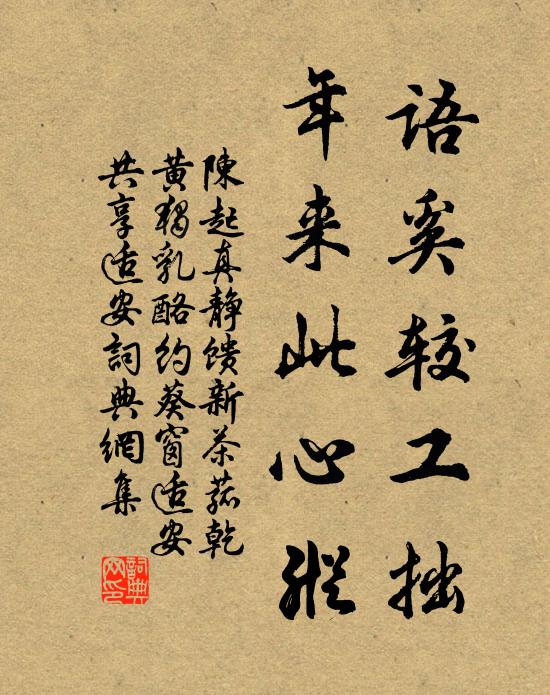 語奚较工拙
年来此心懒
陳起真静馈新茶菰乾
黃獨乳酪约葵窗适安
共享适安詞典網集
詞典网印